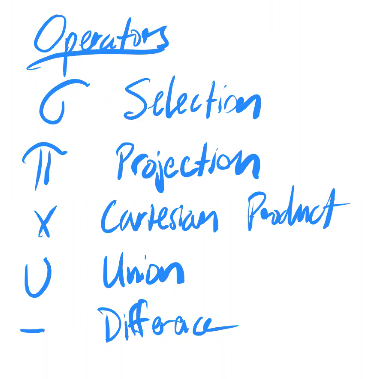 Operators
σ Selection
π Projection
× Cartesian Product
∪ Union
− Differace